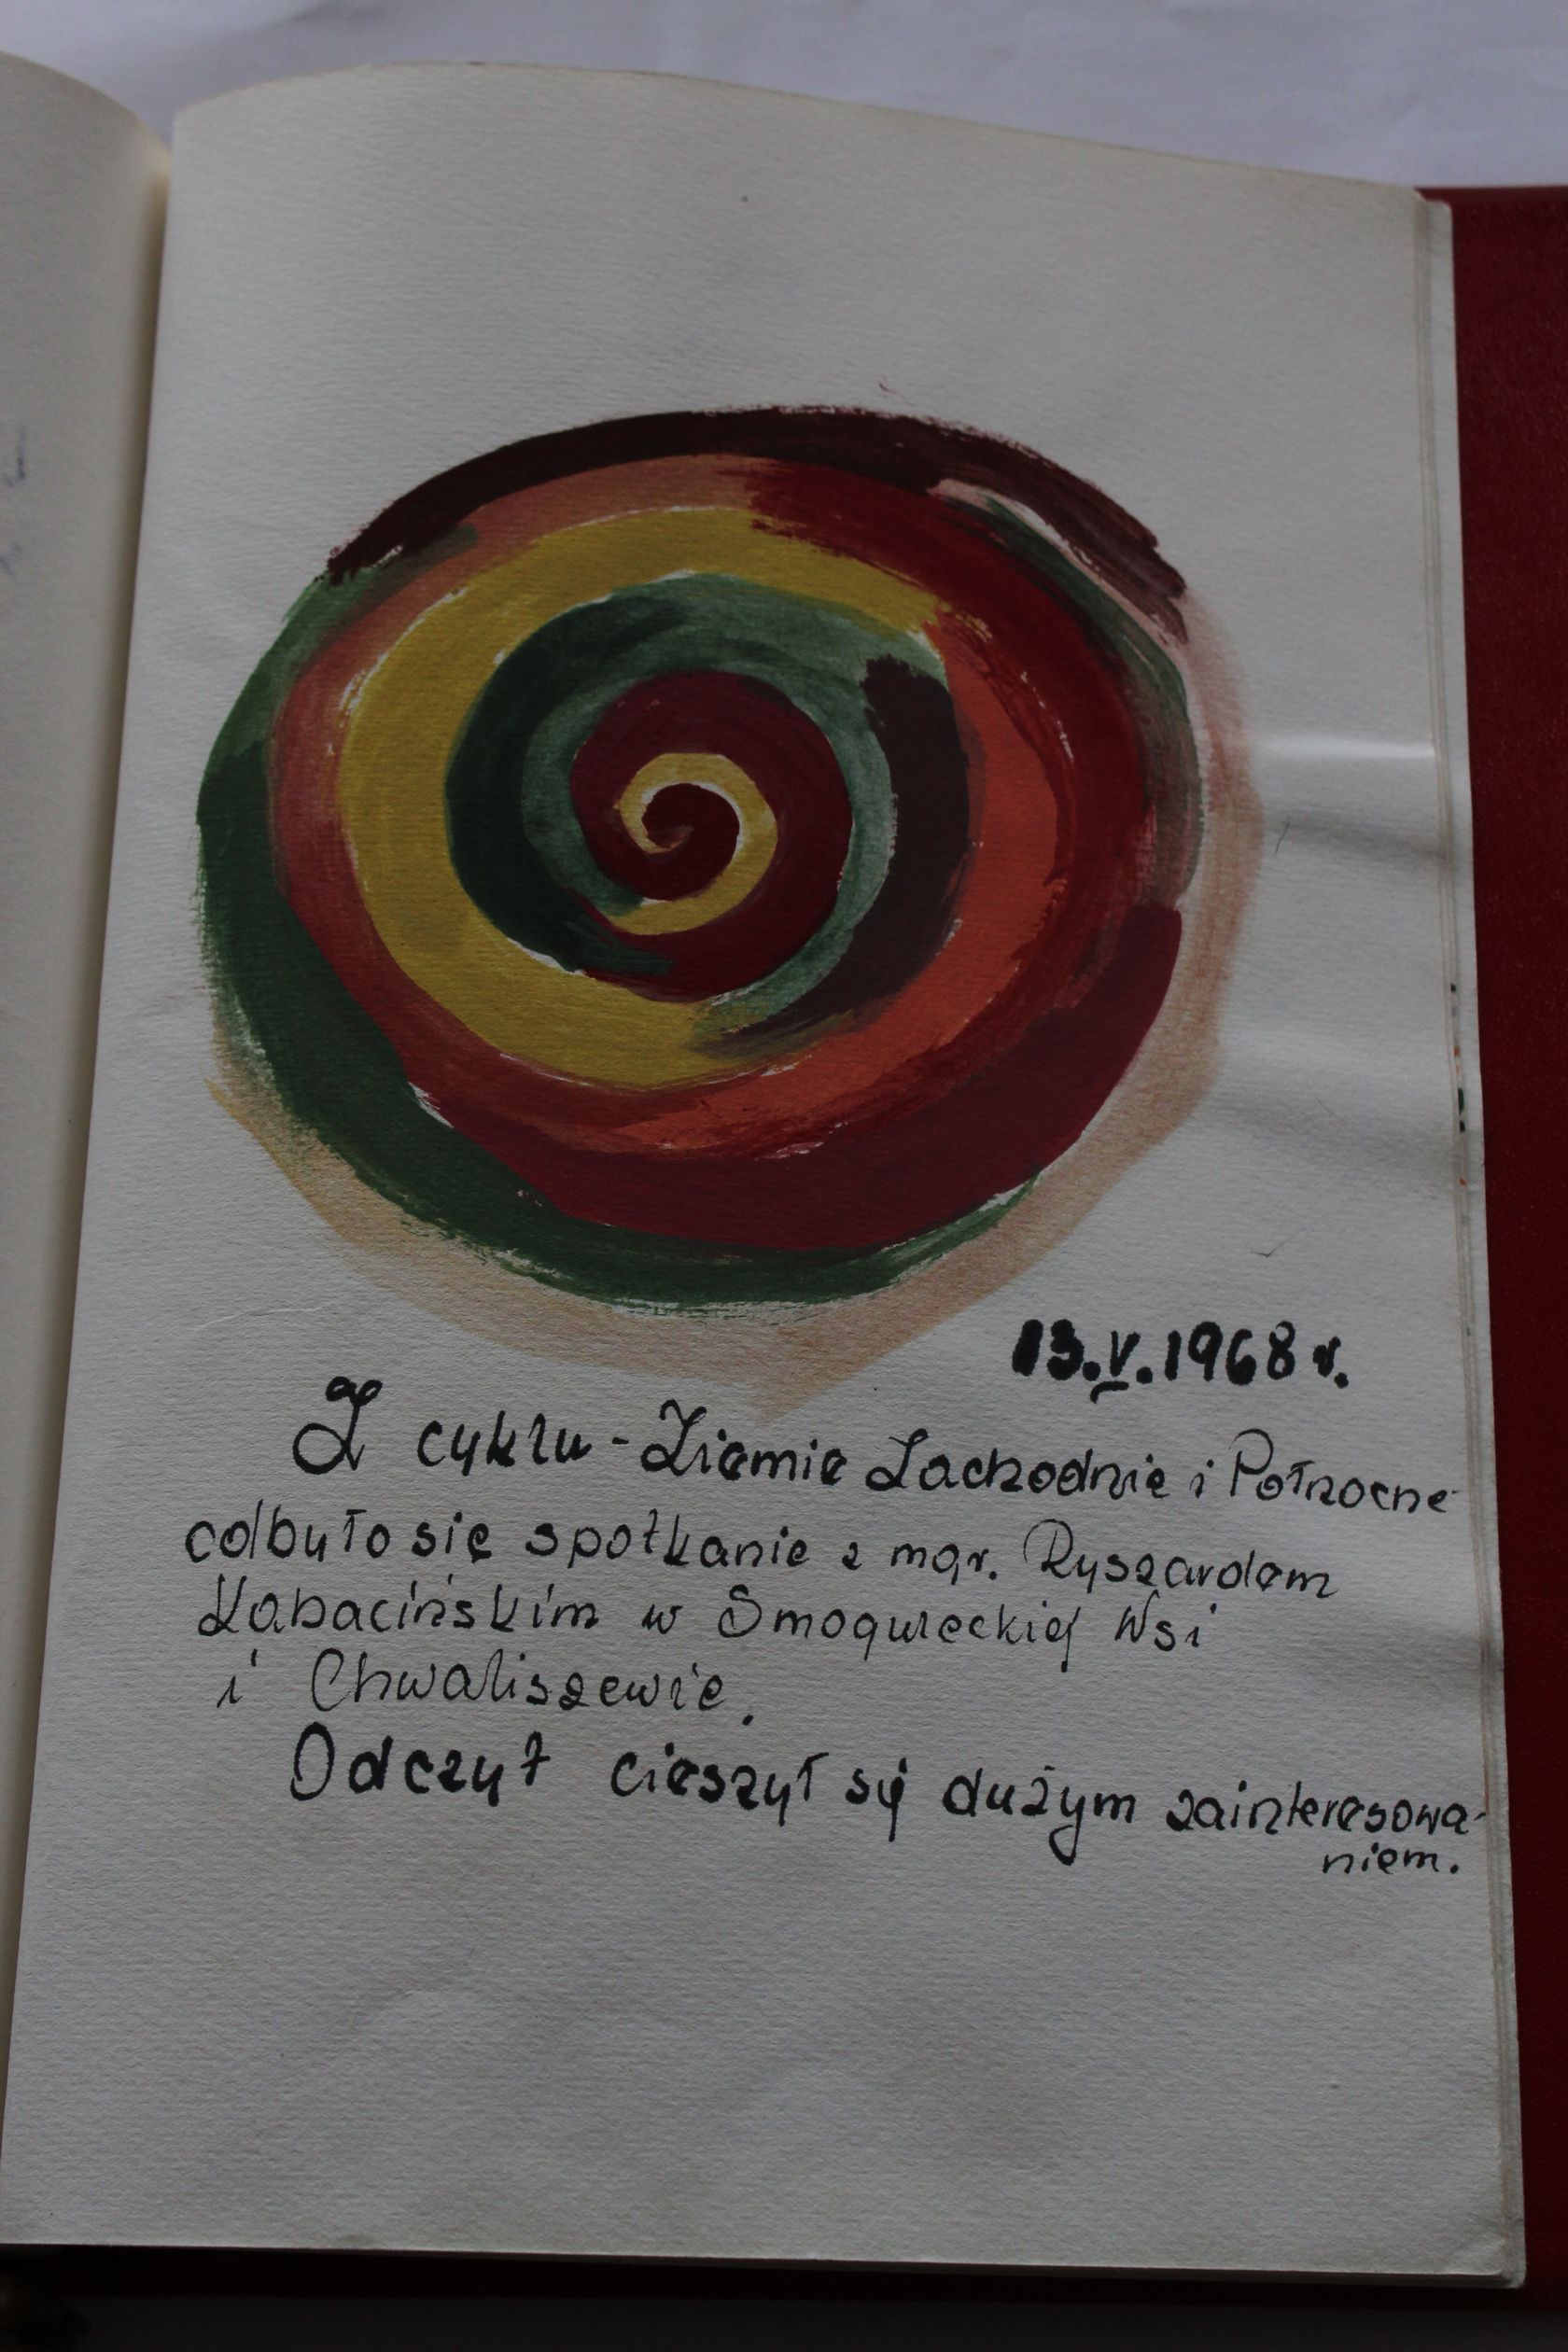 13.V.1968 r.
Z cyklu - Ziemie Zachodnie i Północne
odbyło się spotkanie z mgr. Ryszardem
Kabacińskim w Smogureckiej Wsi
i Chwaliszewie.
Odczyt cieszył się dużym zainteresowa-
niem.